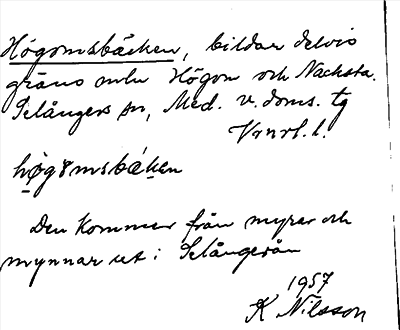 Högomsbäcken, bildar delvis
gräns mln Högom och Nacksta.
Selångers sn, Med. v. doms. tg
Vnrl. l.
høg8msbák̬en
Den kommer från myrar och
mynnar ut i Selångerån
1957
K Nilsson